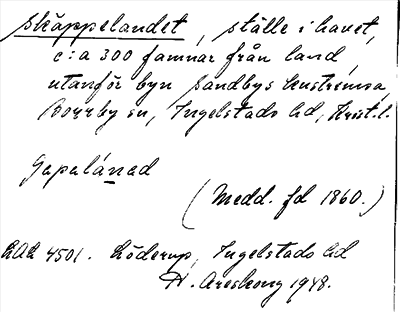 Skäppelandet, ställe i havet,
c:a 300 famnar från land,
utanför byn Sandbys kustrimsa,
Borrby sn, Ingelstads hd, Krist.l.
(Medd. fd 1860.)
4501. Löderup, Ingelstads hd
Areskoug 1948.